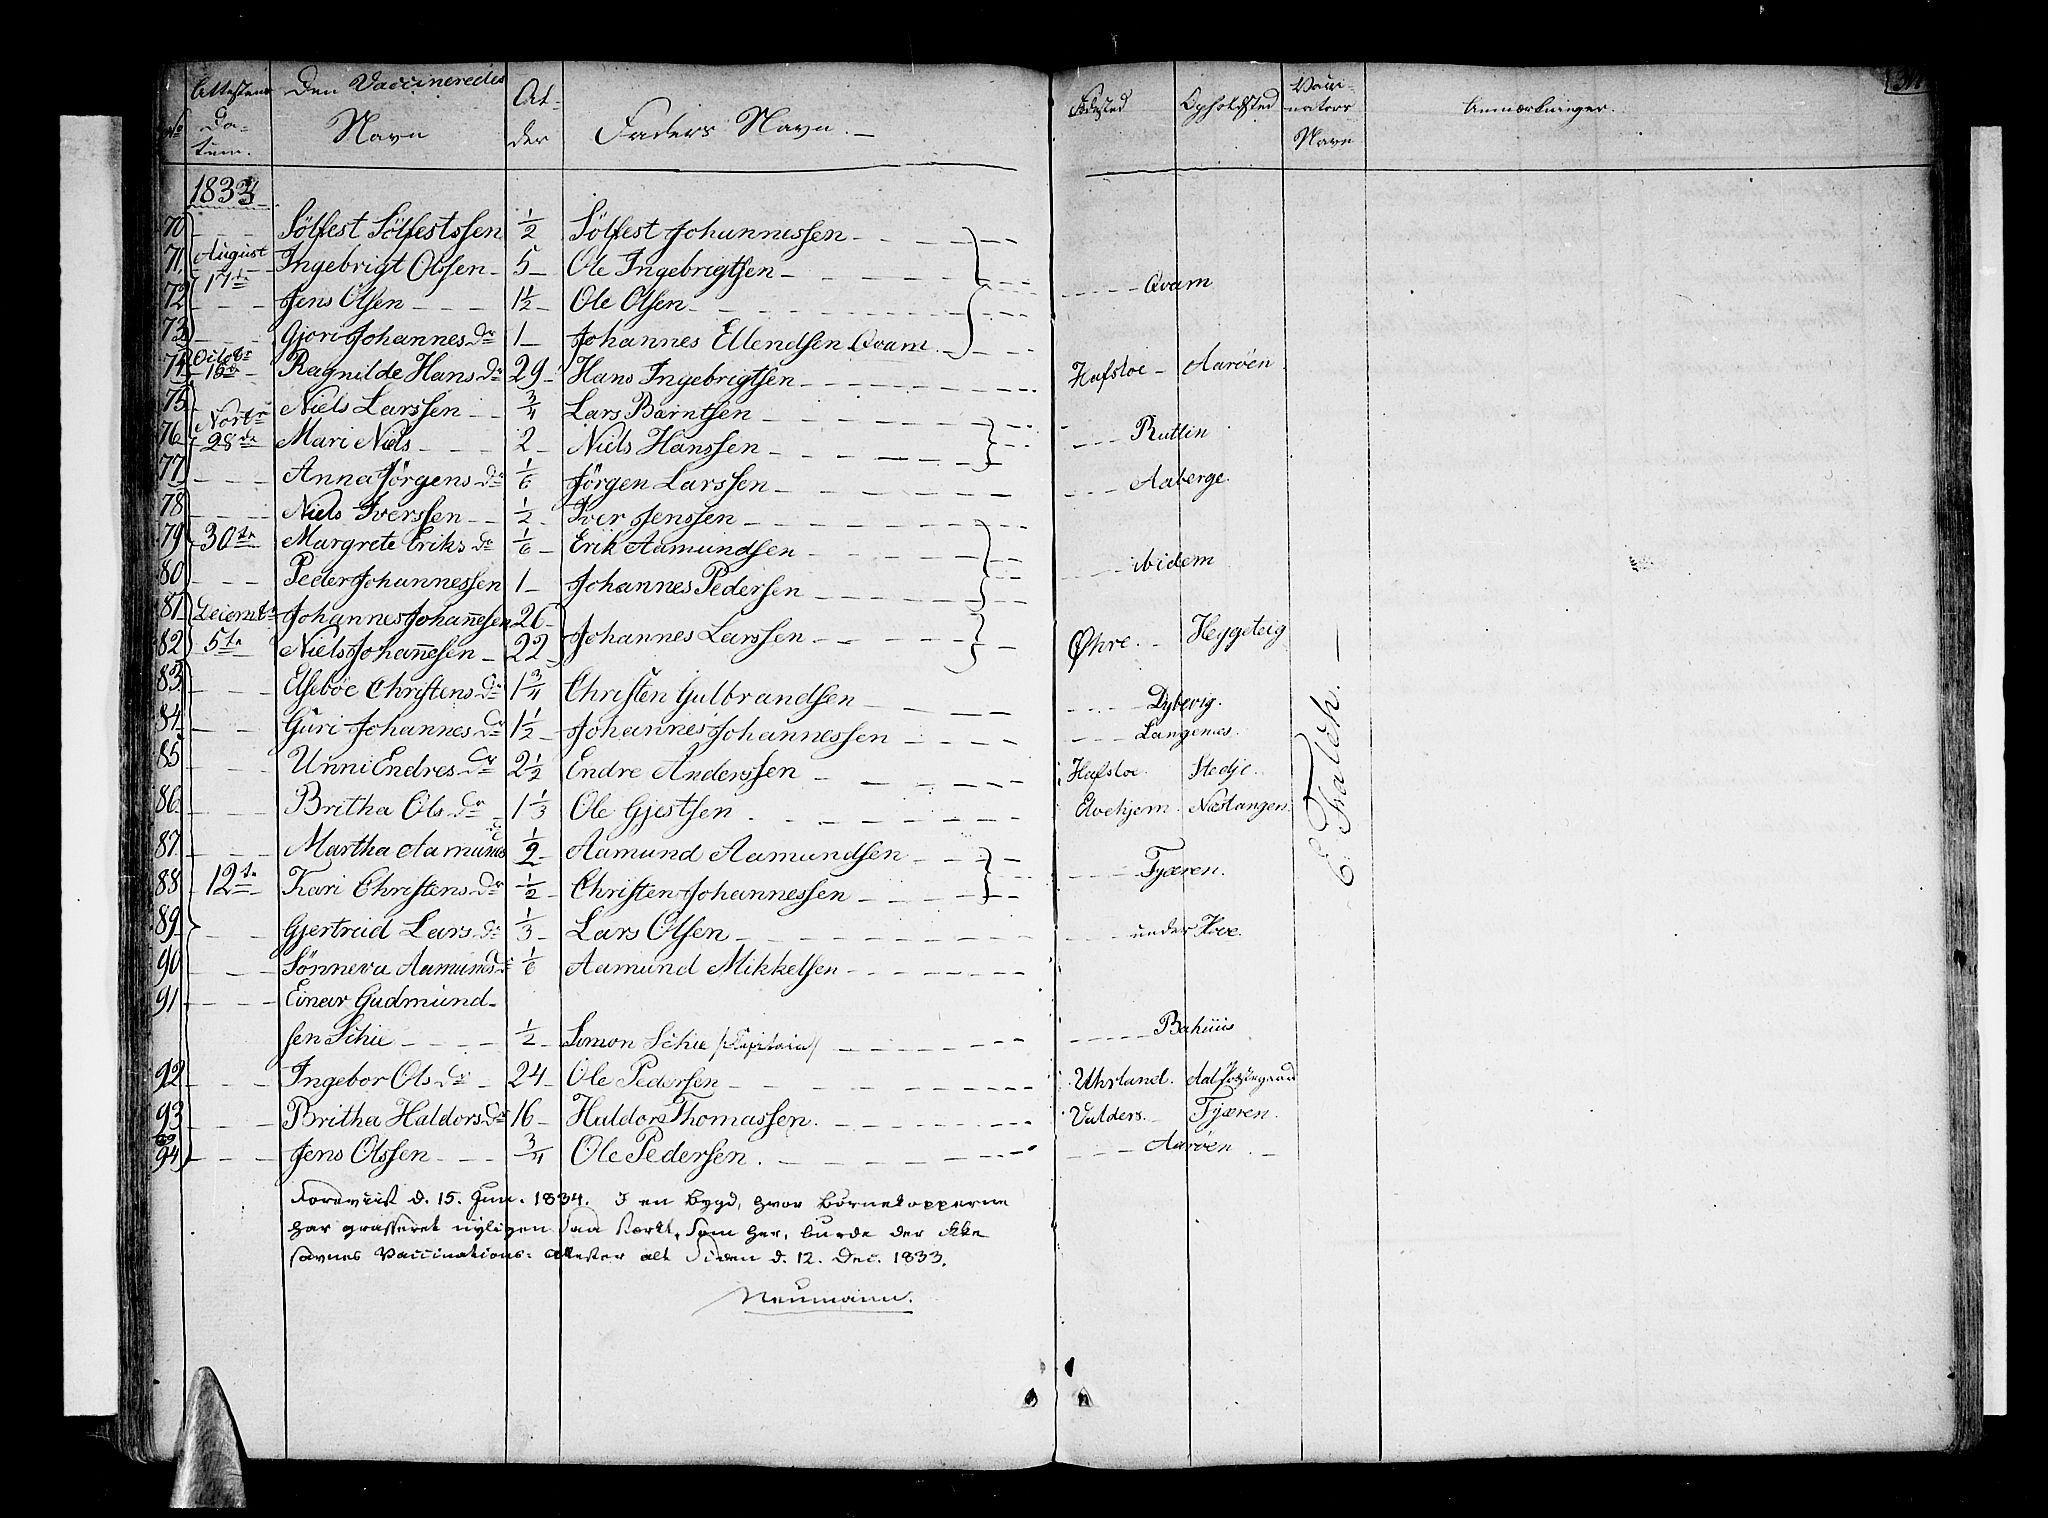 Attestens Den Vaccineredes Al- Fødested Opholdsted Vacci- Anmærkninger.
No Da- Navn der Faders Navn. nators
tum. Navn
1833
70 Sölfest Sölfestssen 1/2 Sölfest Johannessen
71 August Ingebrigt Olssen 5 Ole Ingebrigtsen
72 17de Jens Olsen 1 1/2 Ole Olsen Qvam
73 Gjori Johannes Dr 1 Johannes Ellendsen Qvam
74 Octobr 16de Ragnilde Hans Dr 29 Hans Ingebrigtsen Hafsloe Aarøen
75 Niels Larssen 3/4 Lars Barntsen
76 28de Mari Niels 2 Niels Hanssen Rutlin
77 Anna Jörgens Dr 1/6 Jörgen Larssen Aaberge
78 Niels Iverssen 1/2 Iver Jenssen
79 30te Margrete Eriks Dr 1/6 Erik Aamundsen ibidem
80 Peder Johannessen 1 Johannes Pedersen
81 Decembr Johannes Johan̄esen 26
82 5te Niels Johan̄esen 22 Johannes Larssen Øhre Heggeteig
83 Elseböe Christens Dr 1 3/4 Christen Gulbrandsen Dybevig
84 Guri Johannes Dr 1 1/2 Johannes Johannessen Langenæs
85 Unni Endres Dr 2 1/2 Endre Anderssen Hafsloe Stedje
86 Britha Ols Dr 1 1/3 Ole Gjestsen Qvehjem Næstangen
87 Martha Aamunds 1/2 Aamund Aamundsen
88 12te Kari Christens Dr 1/2 Christen Johannessen Fjæren
89 Gjertruid Lars Dr 1/3 Lars Olsen under Hove
90 Sönneva Aamunds Dr 1/6 Aamund Mikkelsen
91 Einar Gudmund-
sen Schie 1/2 Simon Schie /Capitain/ Bahuus
92 Ingebor Ols Dr 24 Ole Pedersen Uhrland
93 Britha Haldors Dr 16 Haldor Thomassen Valders Fjæren
94 Jens Olssen 3/4 Ole Pedersen Aarøen
E. Falch.
Foreviist d. 15. Jun. 1834. I en Bygd, hvor Børnekopperne
har grasseret nyligen saa stærkt, som her, burde der ikke
savnes Vaccinations-Attester alt siden d. 12. Dec. 1833.
Neumann.